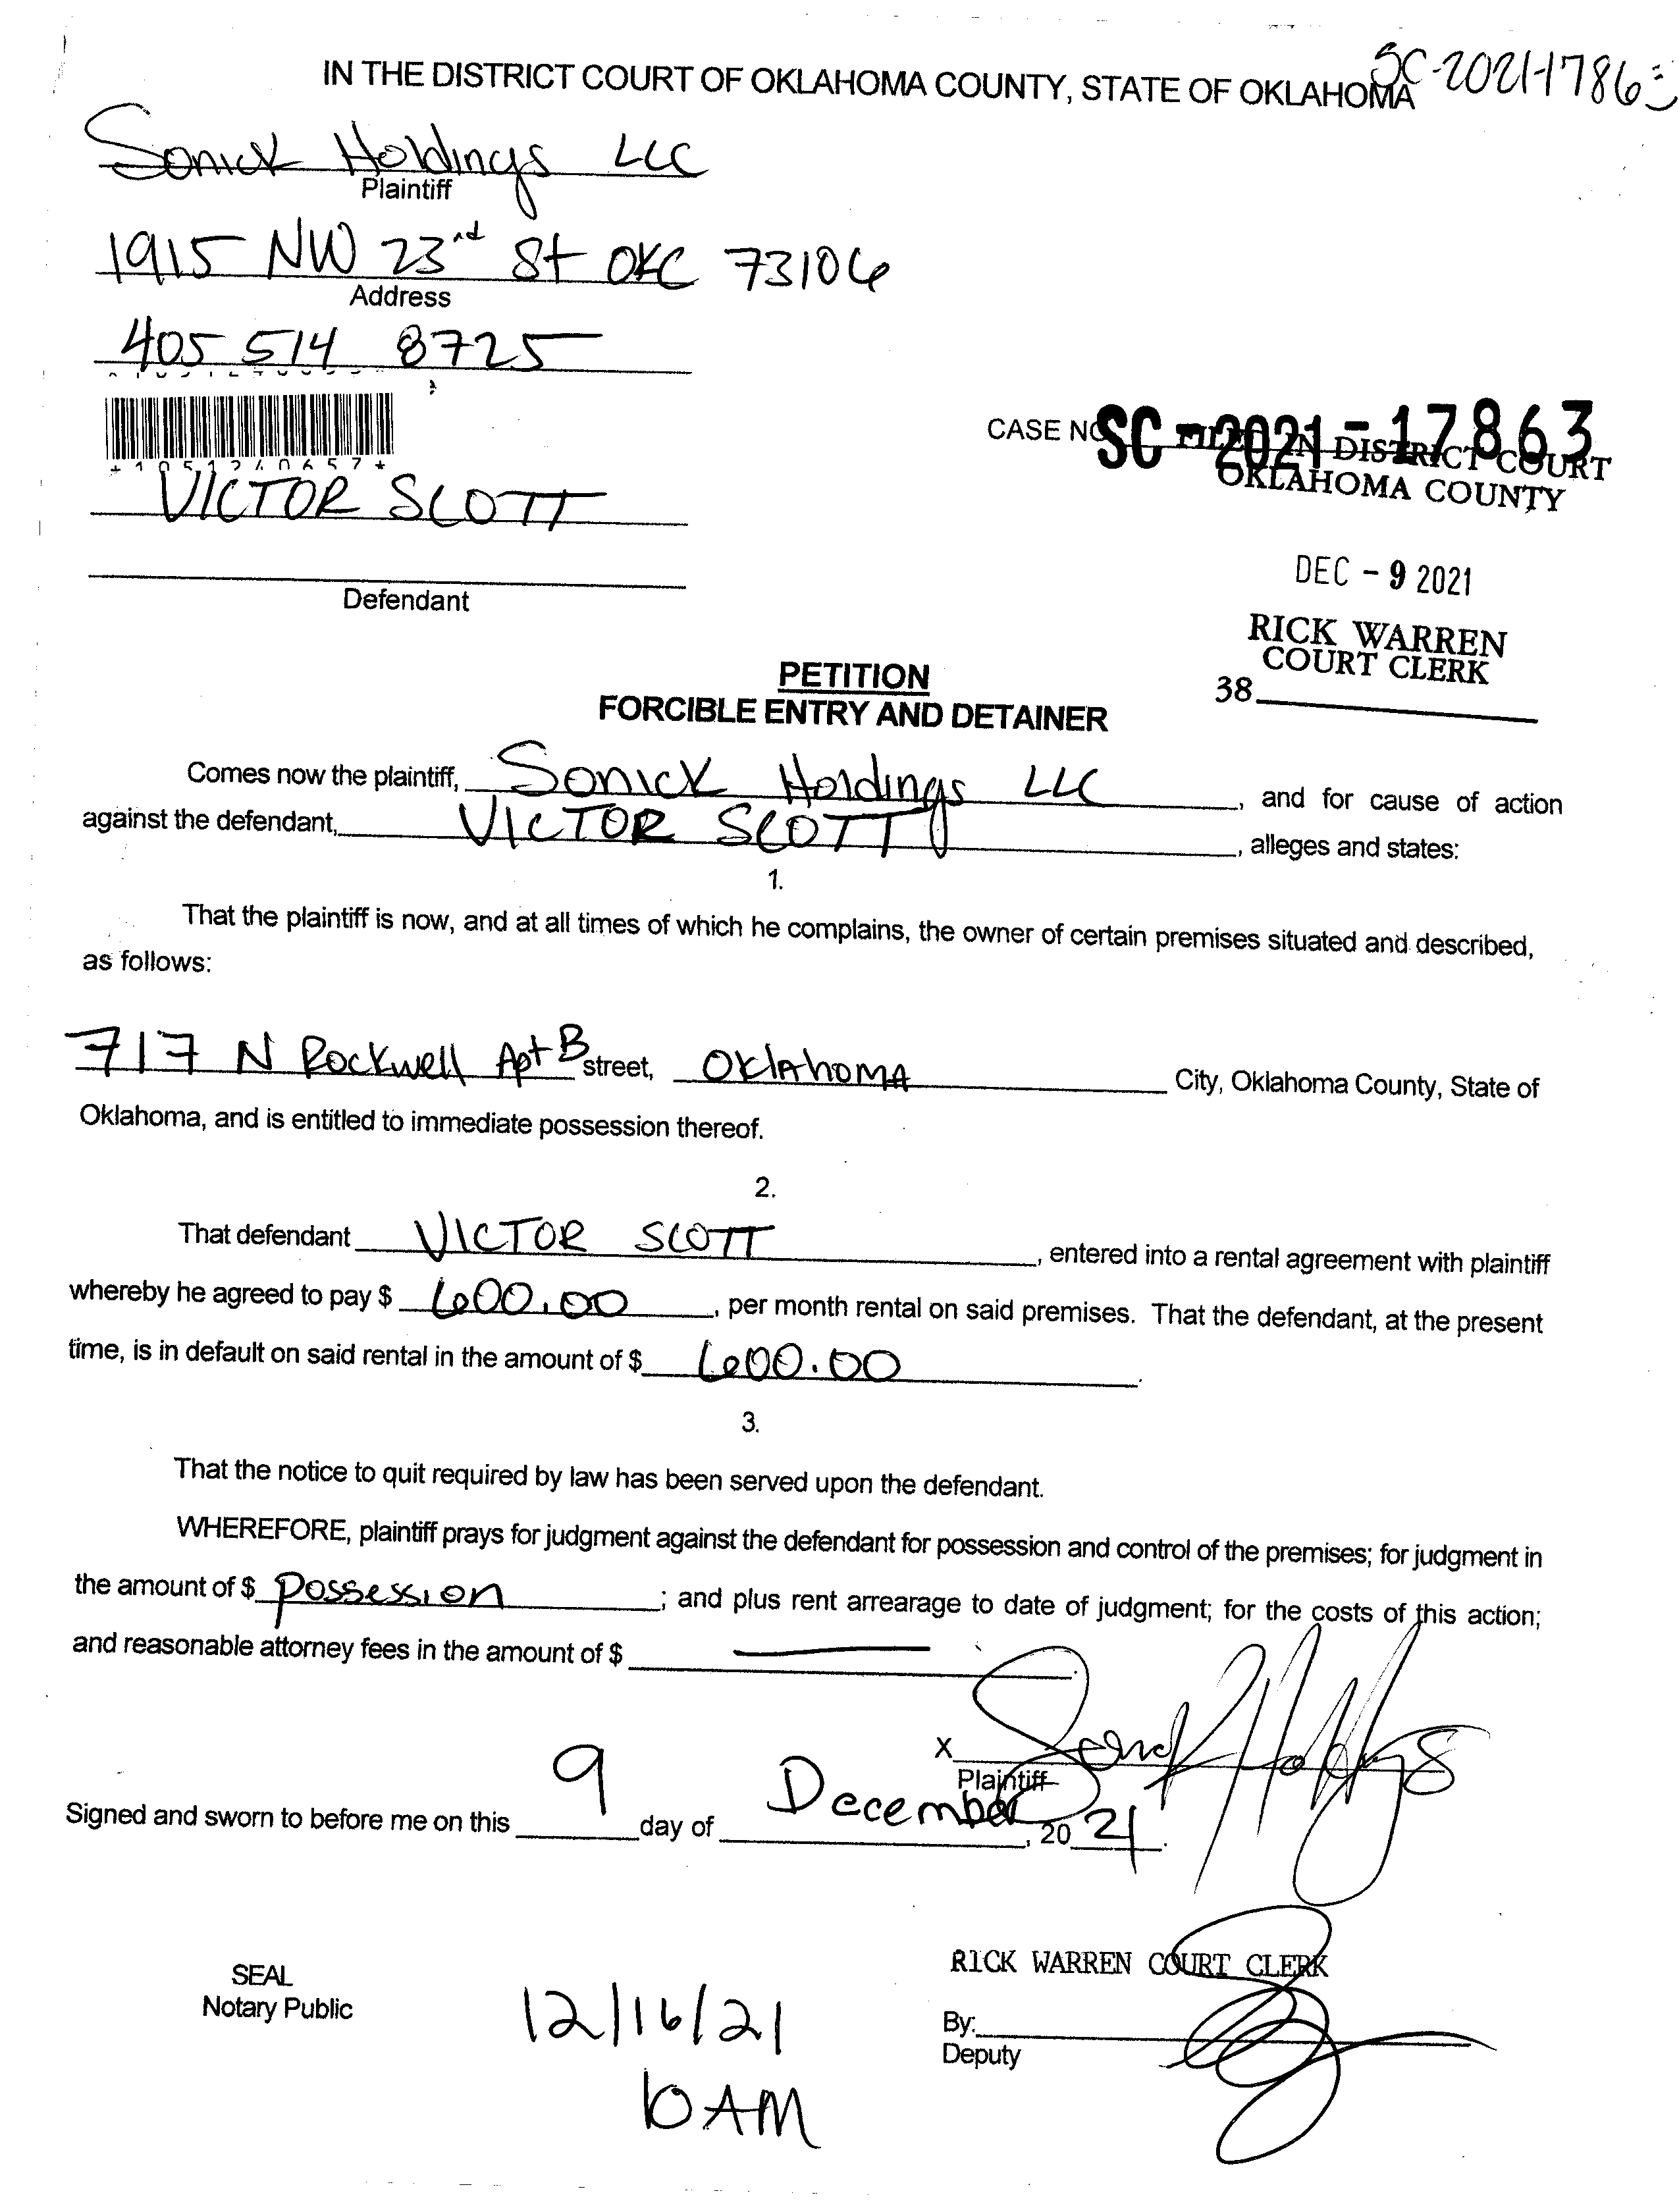 SC-2021-1786
IN THE DISTRICT COURT OF OKLAHOMA COUNTY, STATE OF OKLAHOMA
Sonick Holdings LLC
Plaintiff
1915 NW 23rd St OKC 73106
Address
405 514 8725
*1051240657*
CASE NO SC-2021-17863
FILED IN DISTRICT COURT
OKLAHOMA COUNTY
VICTOR SCOTT
DEC - 9 2021
Defendant
RICK WARREN
COURT CLERK
38
PETITION
FORCIBLE ENTRY AND DETAINER
Comes now the plaintiff, Sonick Holdings LLC, and for cause of action
against the defendant, VICTOR SCOTT, alleges and states:
1.
That the plaintiff is now, and at all times of which he complains, the owner of certain premises situated and described,
as follows:
717 N Rockwell Apt B street, Oklahoma City, Oklahoma County, State of
Oklahoma, and is entitled to immediate possession thereof.
2.
That defendant VICTOR SCOTT, entered into a rental agreement with plaintiff
whereby he agreed to pay $ 600.00, per month rental on said premises. That the defendant, at the present
time, is in default on said rental in the amount of $ 600.00.
3.
That the notice to quit required by law has been served upon the defendant.
WHEREFORE, plaintiff prays for judgment against the defendant for possession and control of the premises; for judgment in
the amount of $ Possession; and plus rent arrearage to date of judgment; for the costs of this action;
and reasonable attorney fees in the amount of $ —.
X Sonick Holdings
Plaintiff
Signed and sworn to before me on this 9 day of December, 20 21.
RICK WARREN COURT CLERK
SEAL
Notary Public
12/16/21
By:
Deputy
10 AM